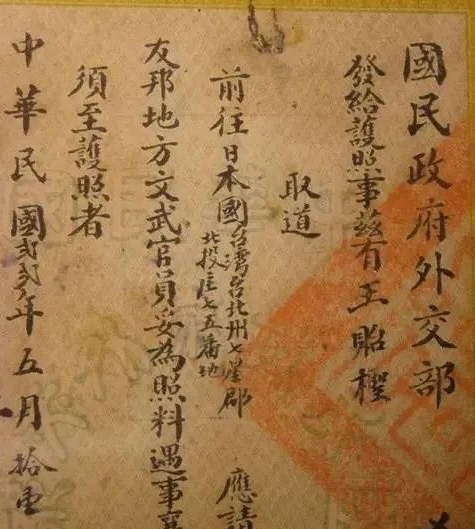 國民政府外交部
發給護照事茲有王貽樫
取道
前往日本國台灣台北州七星郡
北投庄七五番地
應請
友邦地方文武官員妥為照料遇事襄
須至護照者
中華民國貳貳年五月拾壹